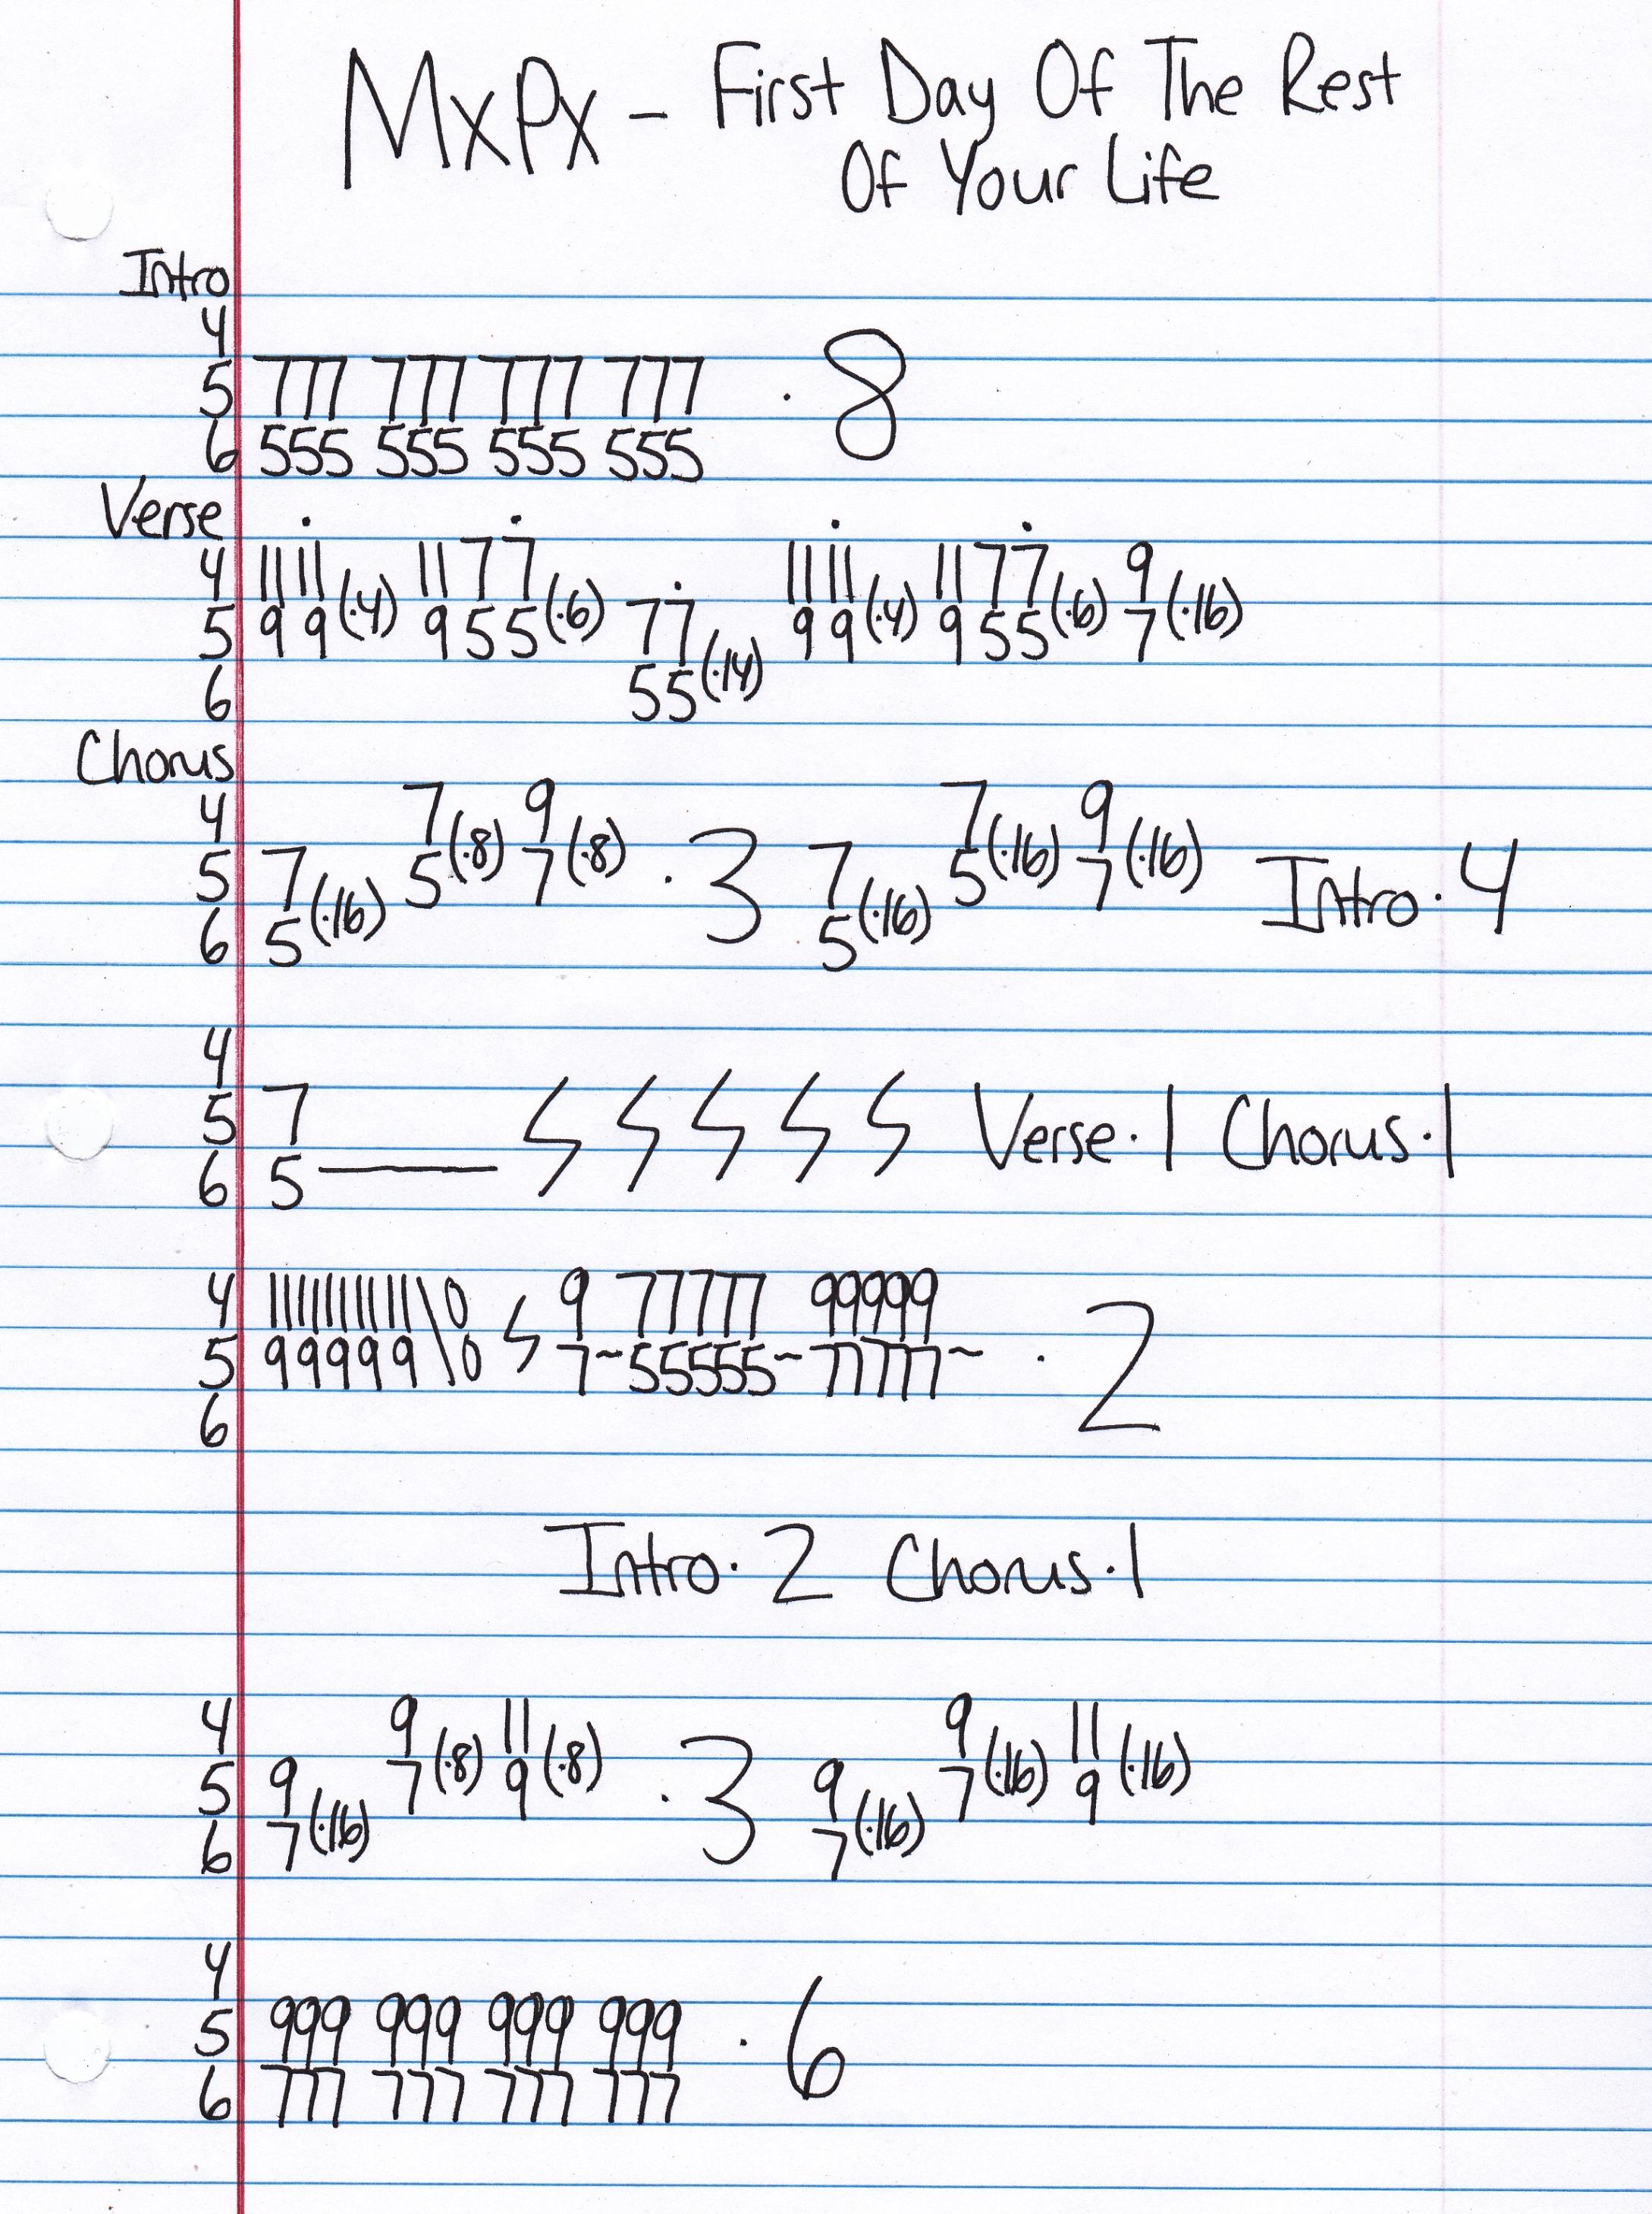 MxPx - First Day Of The Rest
Of Your Life
Intro
4
5 777 777 777 777 · 8
6 555 555 555 555
Verse
4 11 11 11 7 7 11 11 11 7 7 9
5 9 9(·4) 9 5 5(·6) 7 7 9 9(·4) 9 5 5(·6) 7(·16)
6 5 5(·14)
Chorus
4 7 9 7 9
5 7 5(·8) 7(·8) · 3 7 5(·16) 7(·16) Intro · 4
6 5(·16) 5(·16)
4
5 7 Verse · 1 Chorus · 1
6 5
4 11 11 11 11 11 \0 9 77777 99999
5 99999 \0 7~55555~77777~ · 2
6
Intro · 2 Chorus · 1
4 9 11 9 11
5 9 7(·8) 9(·8) · 3 9 7(·16) 9(·16)
6 7(·16) 7(·16)
4
5 999 999 999 999 · 6
6 777 777 777 777